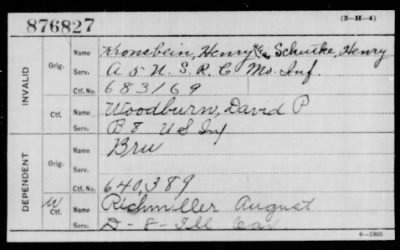 876827 (3-H-4)
INVALID
Orig.
Name Kronsbein, Henry Schutke, Henry
Serv. A 5 U. S. R. C Mo. Inf.
Ctf. No. 683169
Ctf.
Name Woodburn, David P
Serv. B 8 US Inf
DEPENDENT
Orig.
Name Bru
Serv.
Ctf. No. 640,389
W Ctf.
Name Richmiller August
Serv. D-8-Ill Cav
6-1903